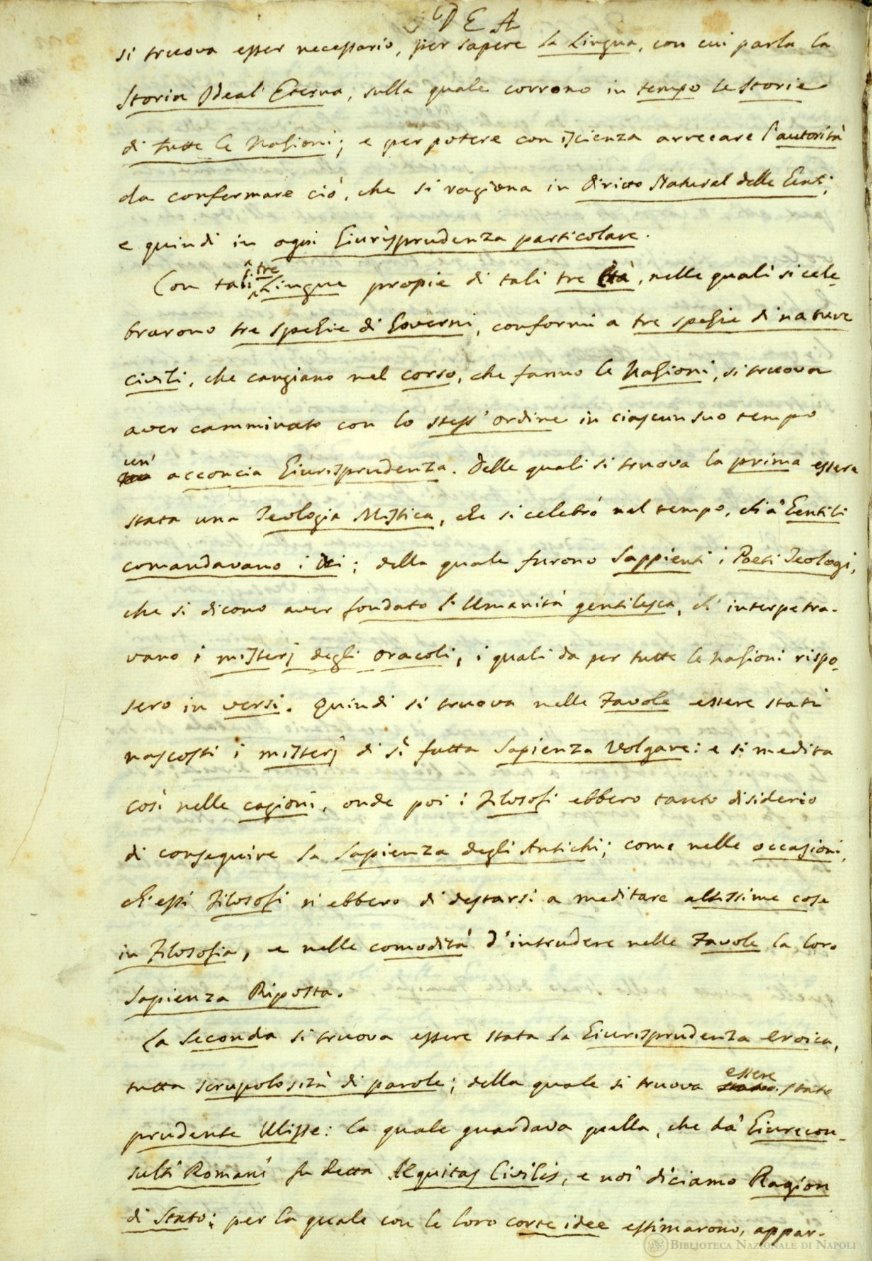 IDEA
si truova esser necessario, per sapere la Lingua, con cui parla la
Storia Ideal' Eterna, sulla quale corrono in tempo le Storie
di tutte le Nazioni; e per potere con iscienza arrecare l'autorità
da confermare ciò, che si ragiona in Diritto Natural delle Genti,
e quindi in ogni Giurisprudenza particolare.
Con tali tre Lingue propie di tali tre Età, nelle quali si cele-
brarono tre spezie di Governi, conformi a tre spezie di nature
civili, che cangiano nel corso, che fanno le Nazioni, si truova
aver camminato con lo stess' ordine in ciascun suo tempo
un' acconcia Giurisprudenza. Delle quali si truova la prima essere
stata una Teologia Mistica, che si celebrò nel tempo, ch'a' Gentili
comandavano i Dei; della quale furono Sappienti i Poeti Teologi,
che si dicono aver fondato l'Umanità gentilesca, ch' interpetra-
vano i misterj degli Oracoli, i quali da per tutte le Nazioni rispo-
sero in versi. Quindi si truova nelle Favole essere stati
nascosti i misterj di sì fatta Sapienza Volgare: e si medita
così nelle cagioni, onde poi i Filosofi ebbero tanto disiderio
di conseguire la Sapienza degli Antichi; come nelle occasioni,
ch'essi Filosofi n'ebbero di destarsi a meditare altissime cose
in Filosofia, e nelle comodità d'intrudere nelle Favole la loro
Sapienza Riposta.
La Seconda si truova essere stata la Giurisprudenza eroica,
tutta scrupolosità di parole; della quale si truova essere stato
prudente Ulisse: la quale guardava quella, che da' Giurecon-
sulti Romani fu detta Aequitas Civilis, e noi diciamo Ragion
di Stato; per la quale con le loro corte idee estimarono, appar-
BIBLIOTECA NAZIONALE DI NAPOLI